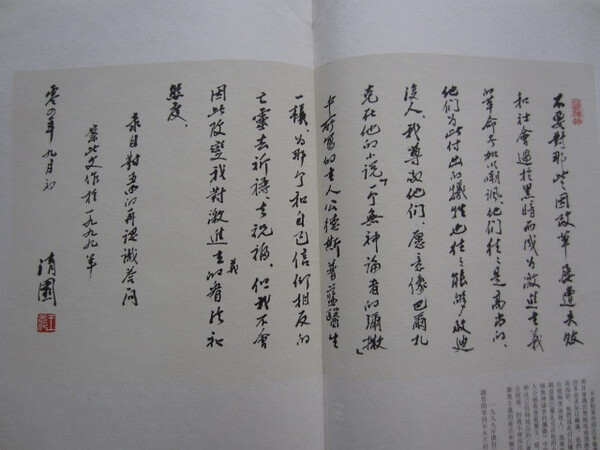 不要對那些因改革屢遭失敗
和社會過於黑暗而成為激進主義
的革命者加以嘲諷，他們往往是高尚的，
他們為此付出的犧牲也往往能夠啟迪
後人。我尊敬他們，願意像巴爾扎
克在他的小說「一個無神論者的彌撒」
中所寫的主人公德斯普蘭醫生
一樣，為那个和自己信仰相反的
亡靈去祈禱、去祝福。但我不會
因此改變我對激進主義的看法和
態度。
錄自對五四的再認識答問
案此文作於一九九九年
零四年九月初
清園